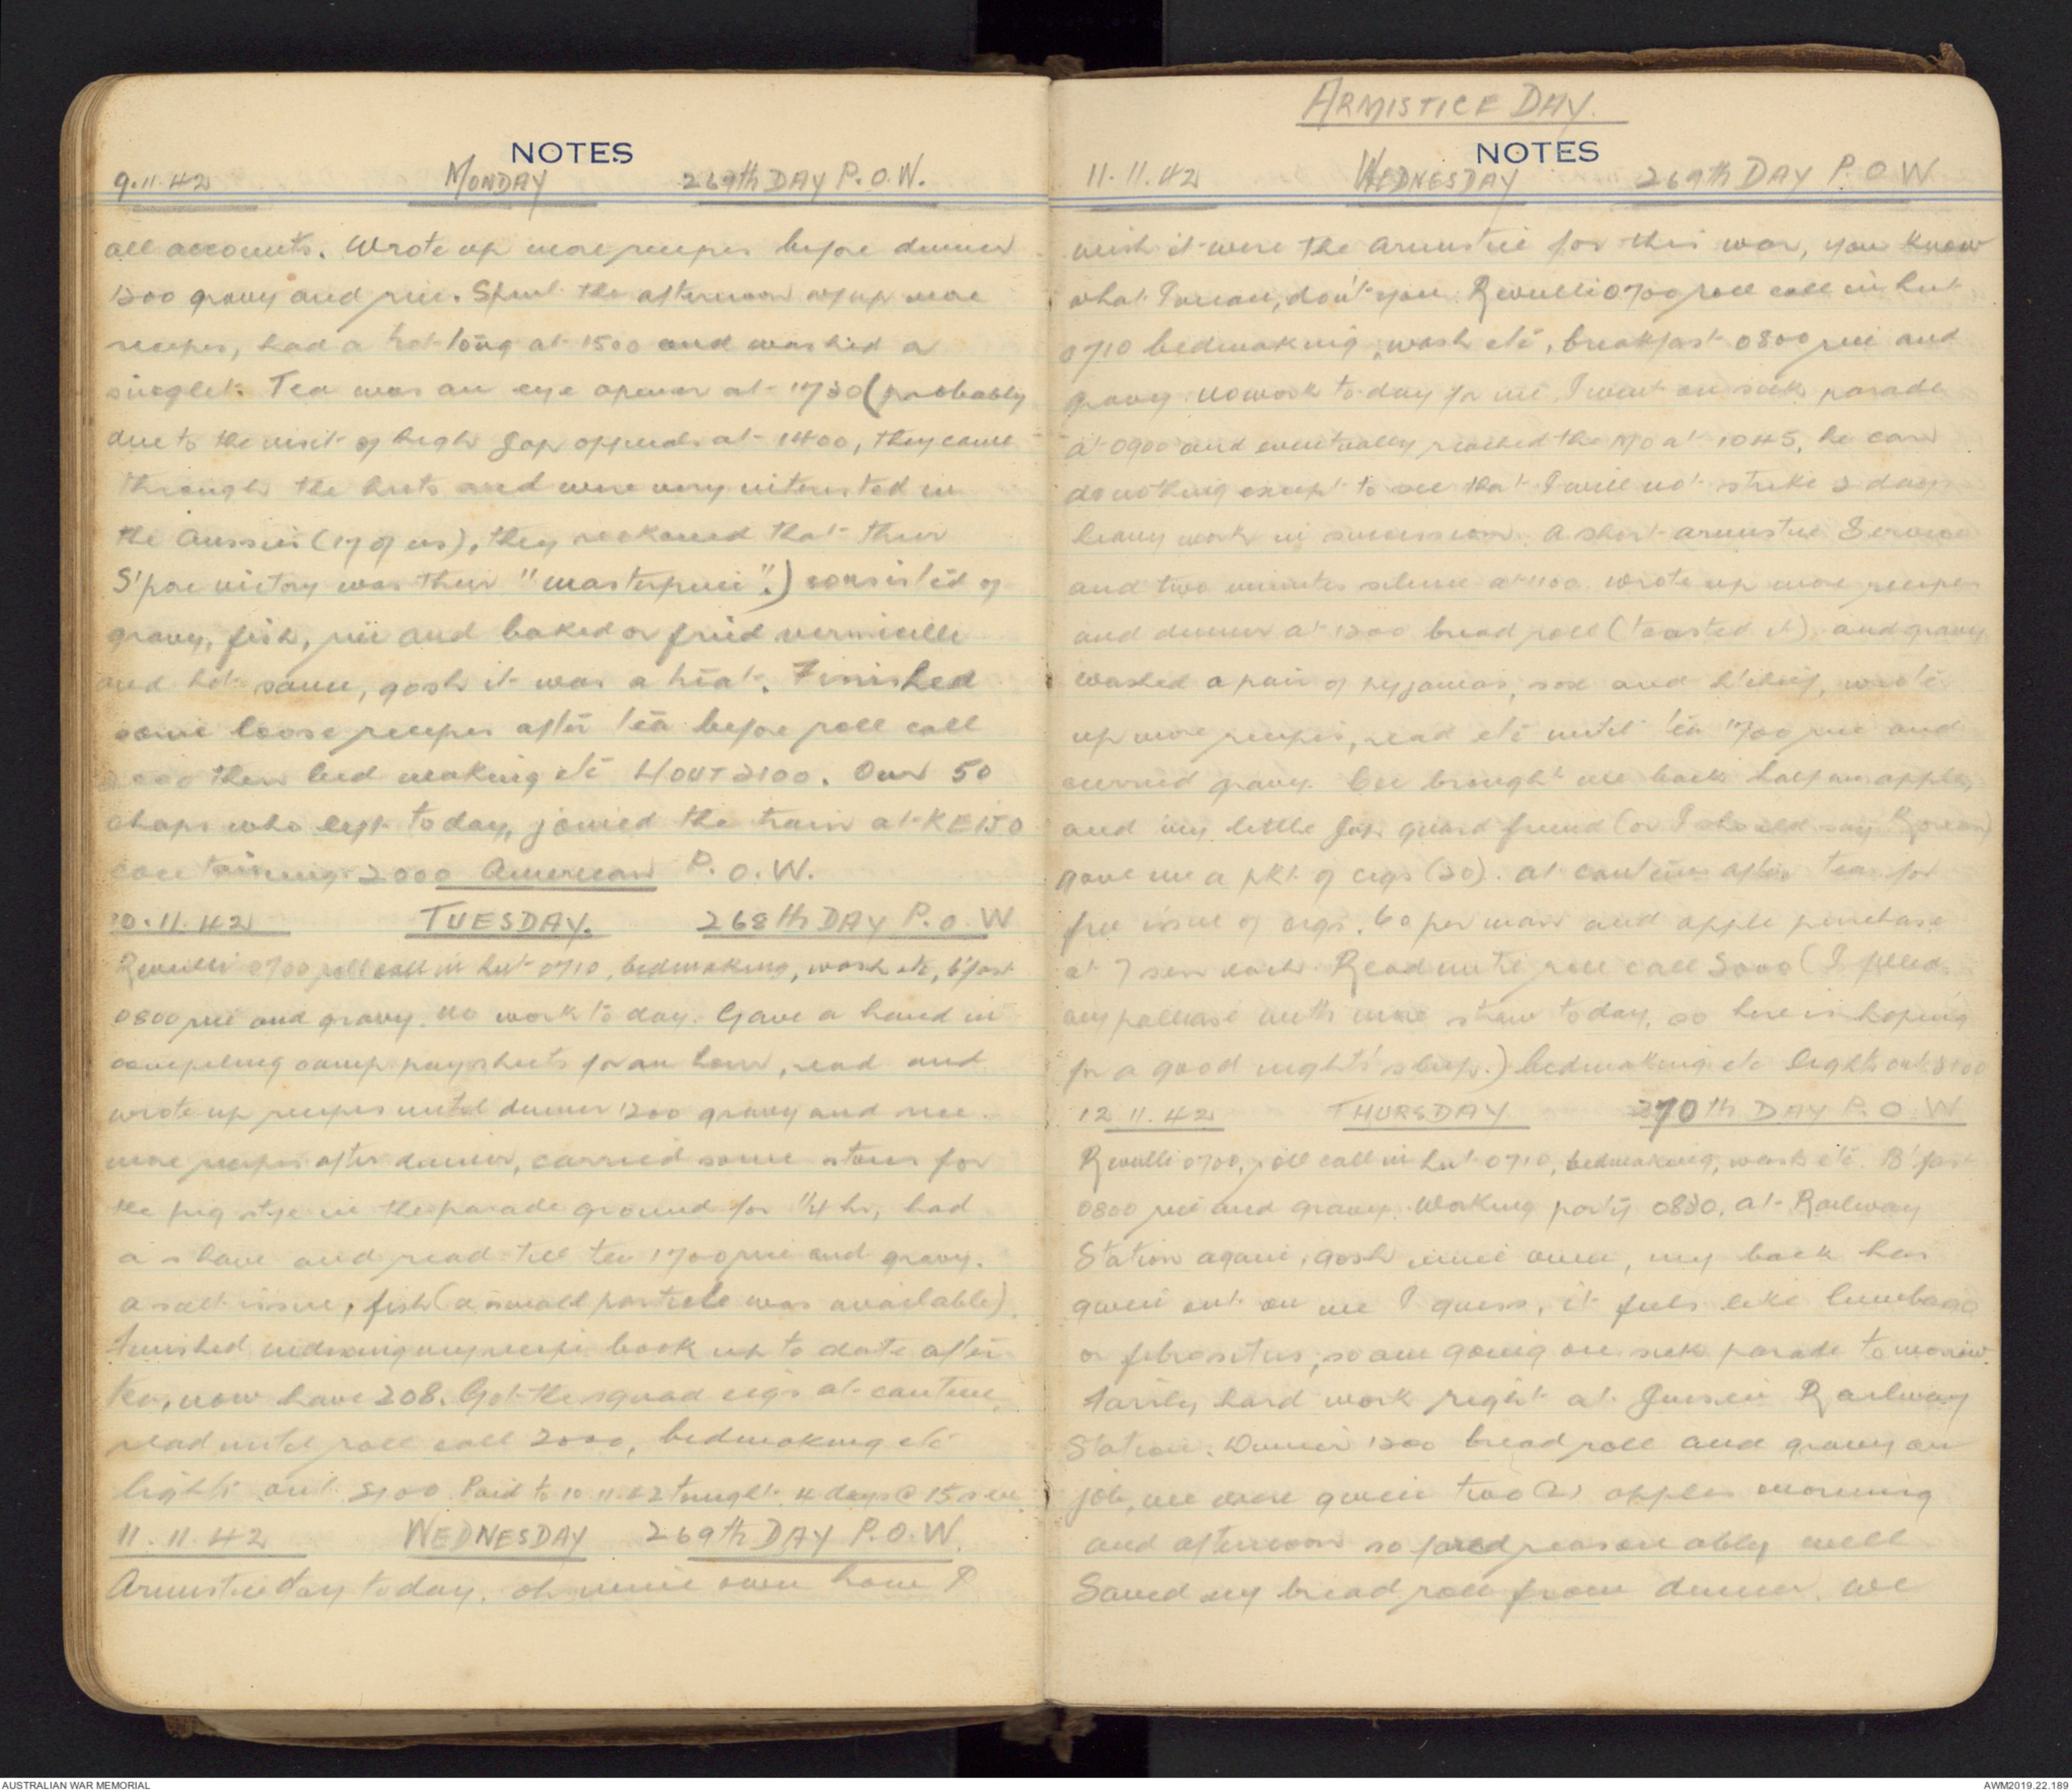 NOTES
9.11.42 MONDAY 269th DAY P.O.W.
all accounts. Wrote up more recipes before dinner
1200 gravy and rice. Spent the afternoon more
recipes, had a hot tong at 1500 and washed a
singlet. Tea was an eye opener at 1730 (probably
due to the visit of high Jap officials at 1400, they came
through the huts and were very interested in
the Aussies (17 of us), they reckoned that their
S'pore victory was their "masterpiece".) consisted of
gravy, fish, rice and baked or fried vermicelli
and hot sauce, gosh it was a treat. Finished
some loose recipes after tea before roll call
2000 then bed making etc L/OUT 2100. Our 50
chaps who left today, joined the train at KEIJO
containing 2000 American P.O.W.
10.11.42 TUESDAY. 268th DAY P.O.W
Reveille 0700 roll call in hut 0710, bedmaking, wash etc, b'fast
0800 rice and gravy. No work to day. Gave a hand in
compiling camp paysheets for an hour, read and
wrote up recipes until dinner 1200 gravy and rice.
more recipes after dinner, carried some stones for
the pig stye in the parade ground for 1/4 hr, had
a shave and read till tea 1700 rice and gravy.
a salt issue, fish (a small particle was available).
Finished indexing my recipe book up to date after
tea, now have 208. Got the squad cigs at canteen,
read until roll call 2000, bedmaking etc
lights out 2100. Paid to 10.11.42 tonight 4 days @ 15 sen
11.11.42 WEDNESDAY 269th DAY P.O.W.
Armistice day today. Oh mine own how I
ARMISTICE DAY.
NOTES
11.11.42 WEDNESDAY 269th DAY P.O W
wish it were the armistice for this war, you know
what I mean, don't you. Reveille 0700 roll call in hut
0710 bedmaking, wash etc, breakfast 0800 rice and
gravy. No work to-day for me. I went on sick parade
at 0900 and eventually reached the M/O at 1045, he can
do nothing except to see that I will not strike 2 days
heavy work in succession. A short armistice Service
and two minutes silence at 1100. Wrote up more recipes
and dinner at 1200 bread roll (toasted it) and gravy
washed a pair of pyjamas, sox and h'chief, wrote
up more recipes, read etc until tea 1700 rice and
curried gravy. brought me back half an apple,
and my little Jap guard friend (or I should say Korean)
gave me a pkt of cigs (20). At canteen after tea for
free issue of cigs. 60 per man and apple purchase
at 7 sen each. Read until roll call 2000 (I filled
my palliase with more straw today, so here is hoping
for a good night's sleep.) bedmaking etc lights out 2100
12.11.42 THURSDAY 270th DAY P.O.W
Reveille 0700, roll call in hut 0710, bedmaking, wash etc. B'fast
0800 rice and gravy. Working party 0830, at Railway
Station again, gosh mine own, my back has
given out on me I guess, it feels like lumbago
or fibrositus, so am going on sick parade tomorrow.
Fairly hard work right at Jinsen Railway
Station. Dinner 1200 bread roll and gravy on
job, we were given two (2) apples morning
and afternoon so fared reasonably well
Saved my bread roll from dinner. We
AUSTRALIAN WAR MEMORIAL
AWM2019.22.189